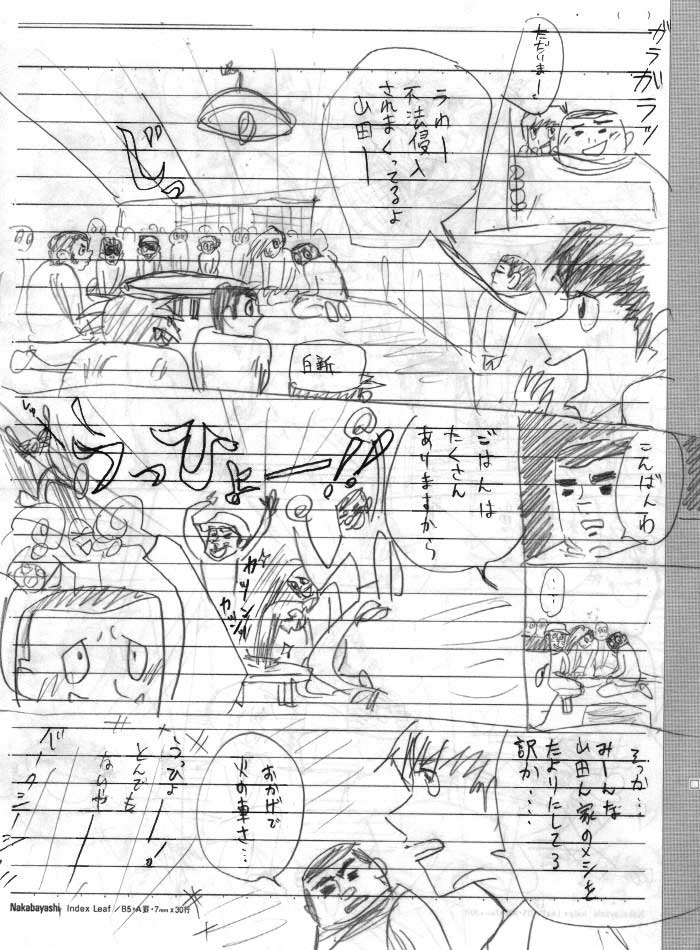 ガラガラッ
ただいまー
うわー
不法侵入
されまくってるよ
山田ー
こんばんわ
ごはんは
たくさん
ありますから
うっひょー!!
‥‥
ガッツン
ガッシャ
そっか‥
みーんな
山田ん家のメシを
たよりにしてる
訳か‥‥
おかげで
火の車さ‥
うっひょー
とんでも
ないやー
Nakabayashi Index Leaf/B5・A罫・7mm×30行